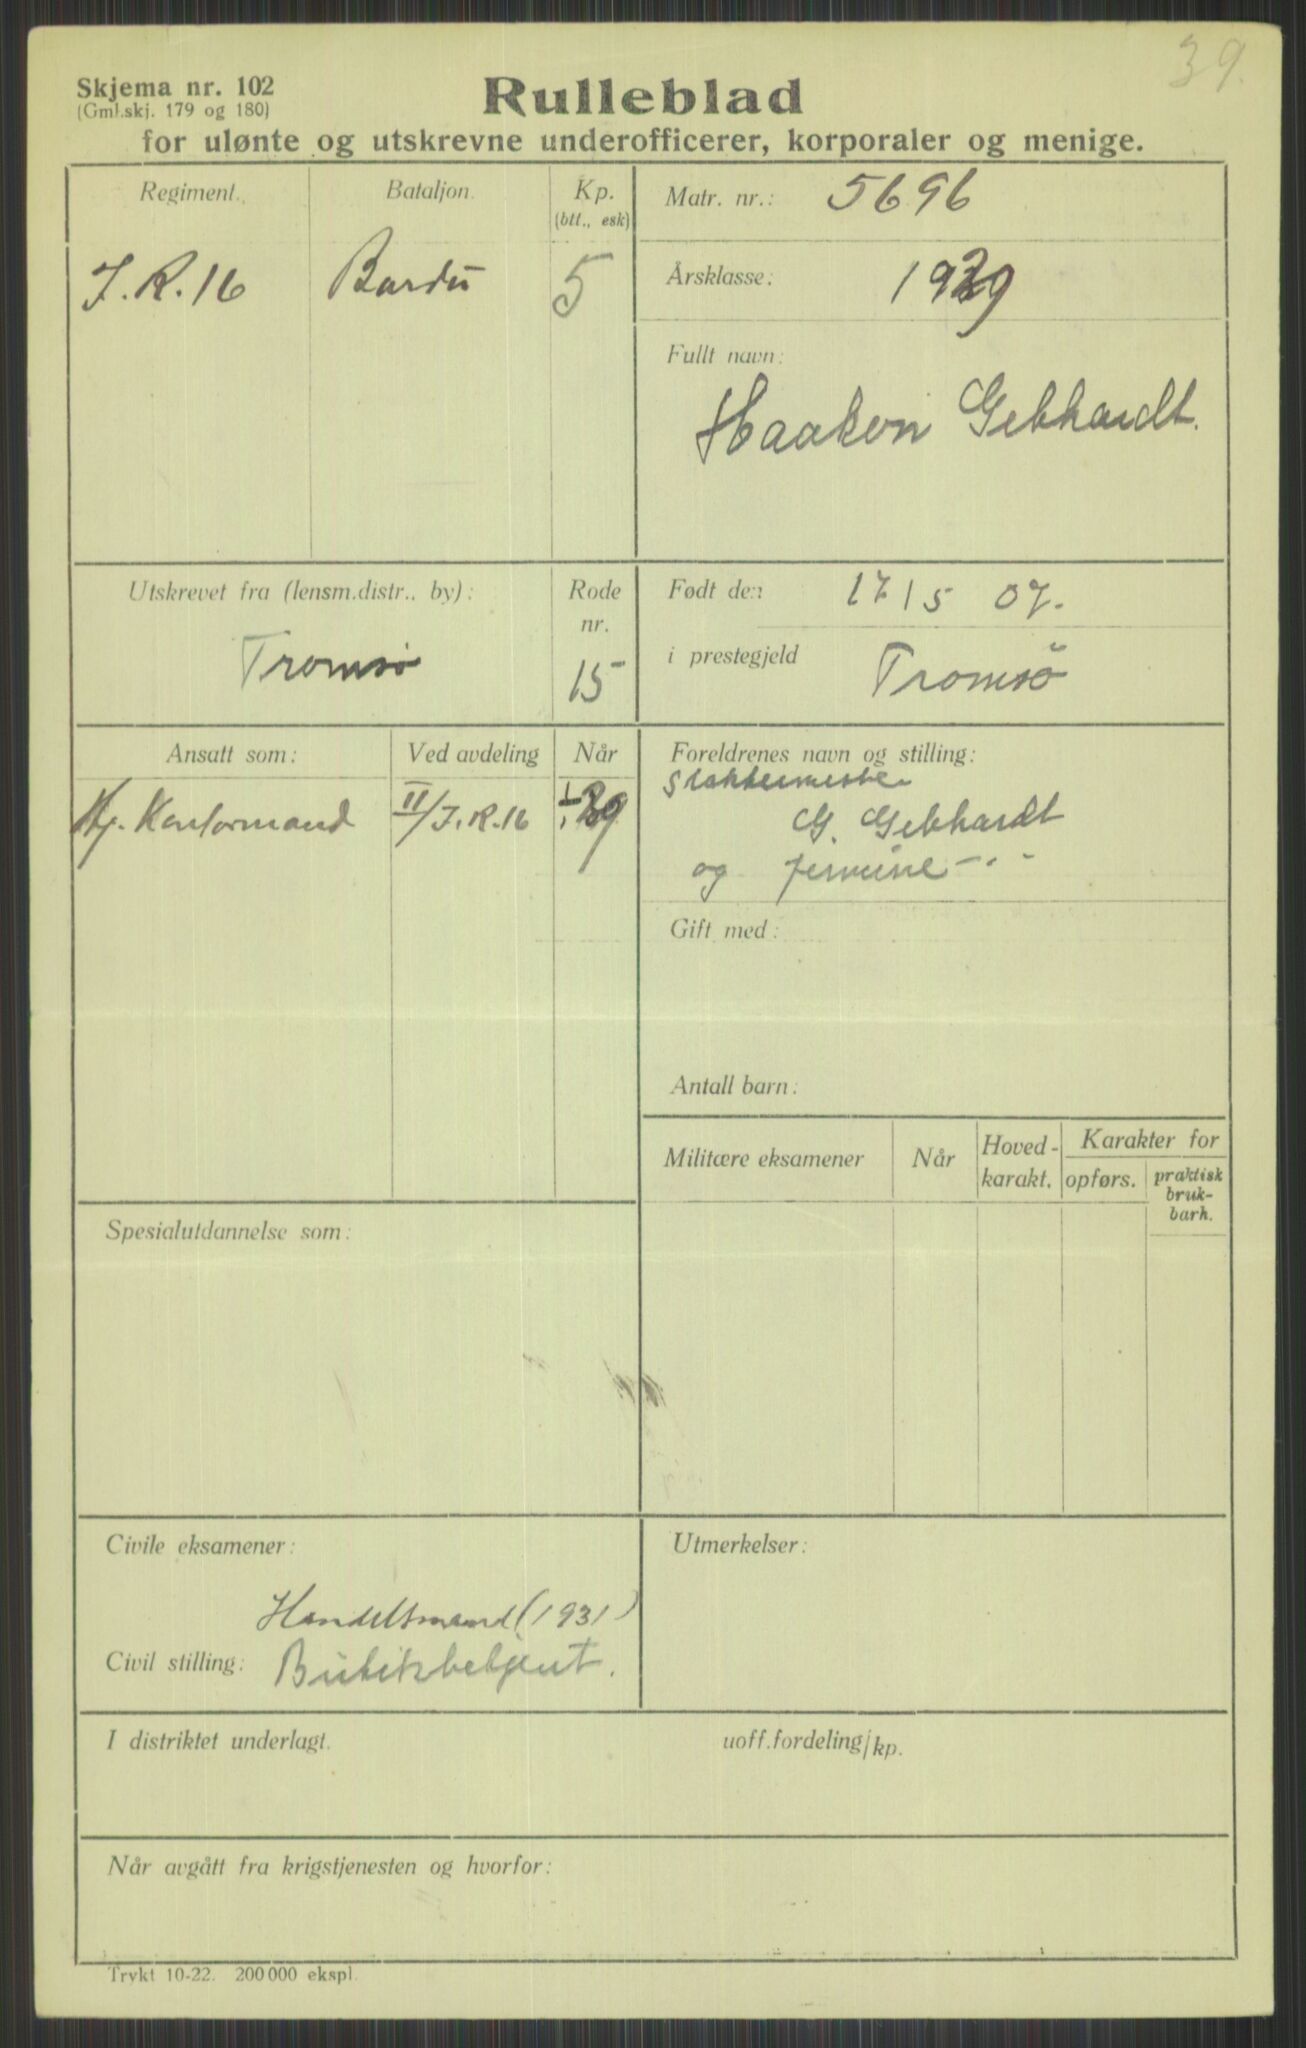 39.
Skjema nr. 102
(Gml.skj. 179 og 180)
Rulleblad
for ulønte og utskrevne underofficerer, korporaler og menige.
Regiment.
Bataljon.
Kp.
(btt., esk)
J.R.16
Bardu
5
Matr. nr.: 5696
Årsklasse: 1929
Fullt navn:
Haakon Gebhardt.
Utskrevet fra (lensm.distr., by):
Tromsø
Rode
nr.
15
Født den 17/5 07.
i prestegjeld Tromsö
Ansatt som:
Ved avdeling
Når
Kontormand
II/J.R.16
Foreldrenes navn og stilling:
G. Gebhardt
og
Gift med:
Antall barn:
Militære eksamener
Når
Hoved-
karakt.
Karakter for
opførs.
praktisk
bruk-
barh.
Spesialutdannelse som:
Civile eksamener:
Handelsmand (1931)
Civil stilling: Butikbetjent.
Utmerkelser:
I distriktet underlagt.
uoff.fordeling/kp.
Når avgått fra krigstjenesten og hvorfor:
Trykt 10-22. 200 000 ekspl.